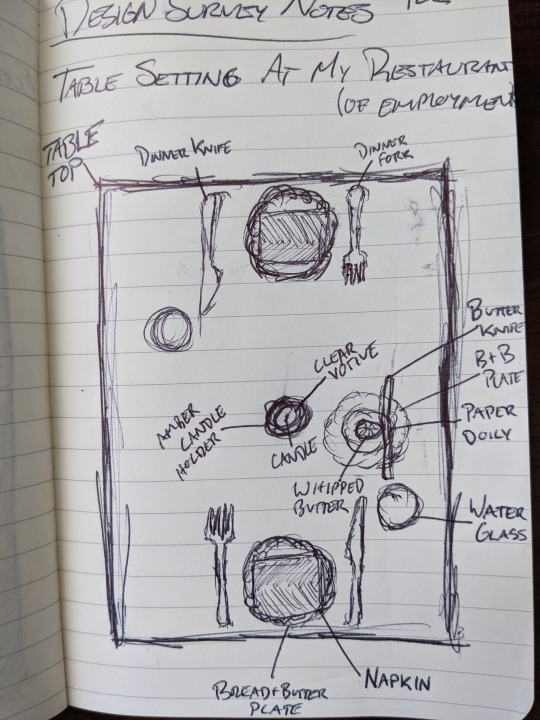 DESIGN SURVEY NOTES
TABLE SETTING AT MY RESTAURANT
(OF EMPLOYMENT
TABLE
TOP
DINNER KNIFE
DINNER
FORK
BUTTER
KNIFE
B+B
PLATE
CLEAR
VOTIVE
AMBER
CANDLE
HOLDER
CANDLE
PAPER
DOILY
WHIPPED
BUTTER
WATER
GLASS
NAPKIN
BREAD+BUTTER
PLATE